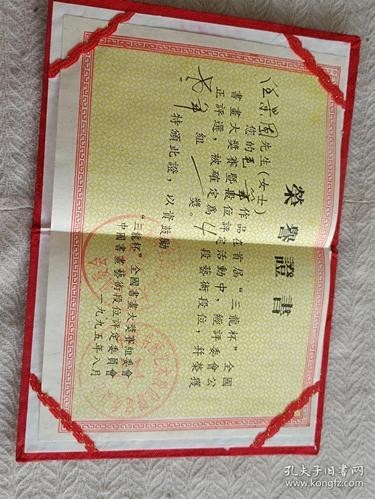 榮譽證書
任景國先生(女士)
您的毛筆作品在首届“三龍杯”全國
書畫大獎賽暨段位評定活動中,經評委會公
正評選,被確定為4段藝術段位,并榮獲
老年組獎。
特頒此證,以資鼓勵
“三龍杯”全國書畫大獎賽組委會
中國書畫藝術段位評定委員會
一九九五年八月
孔夫子旧书网
kongfz.com